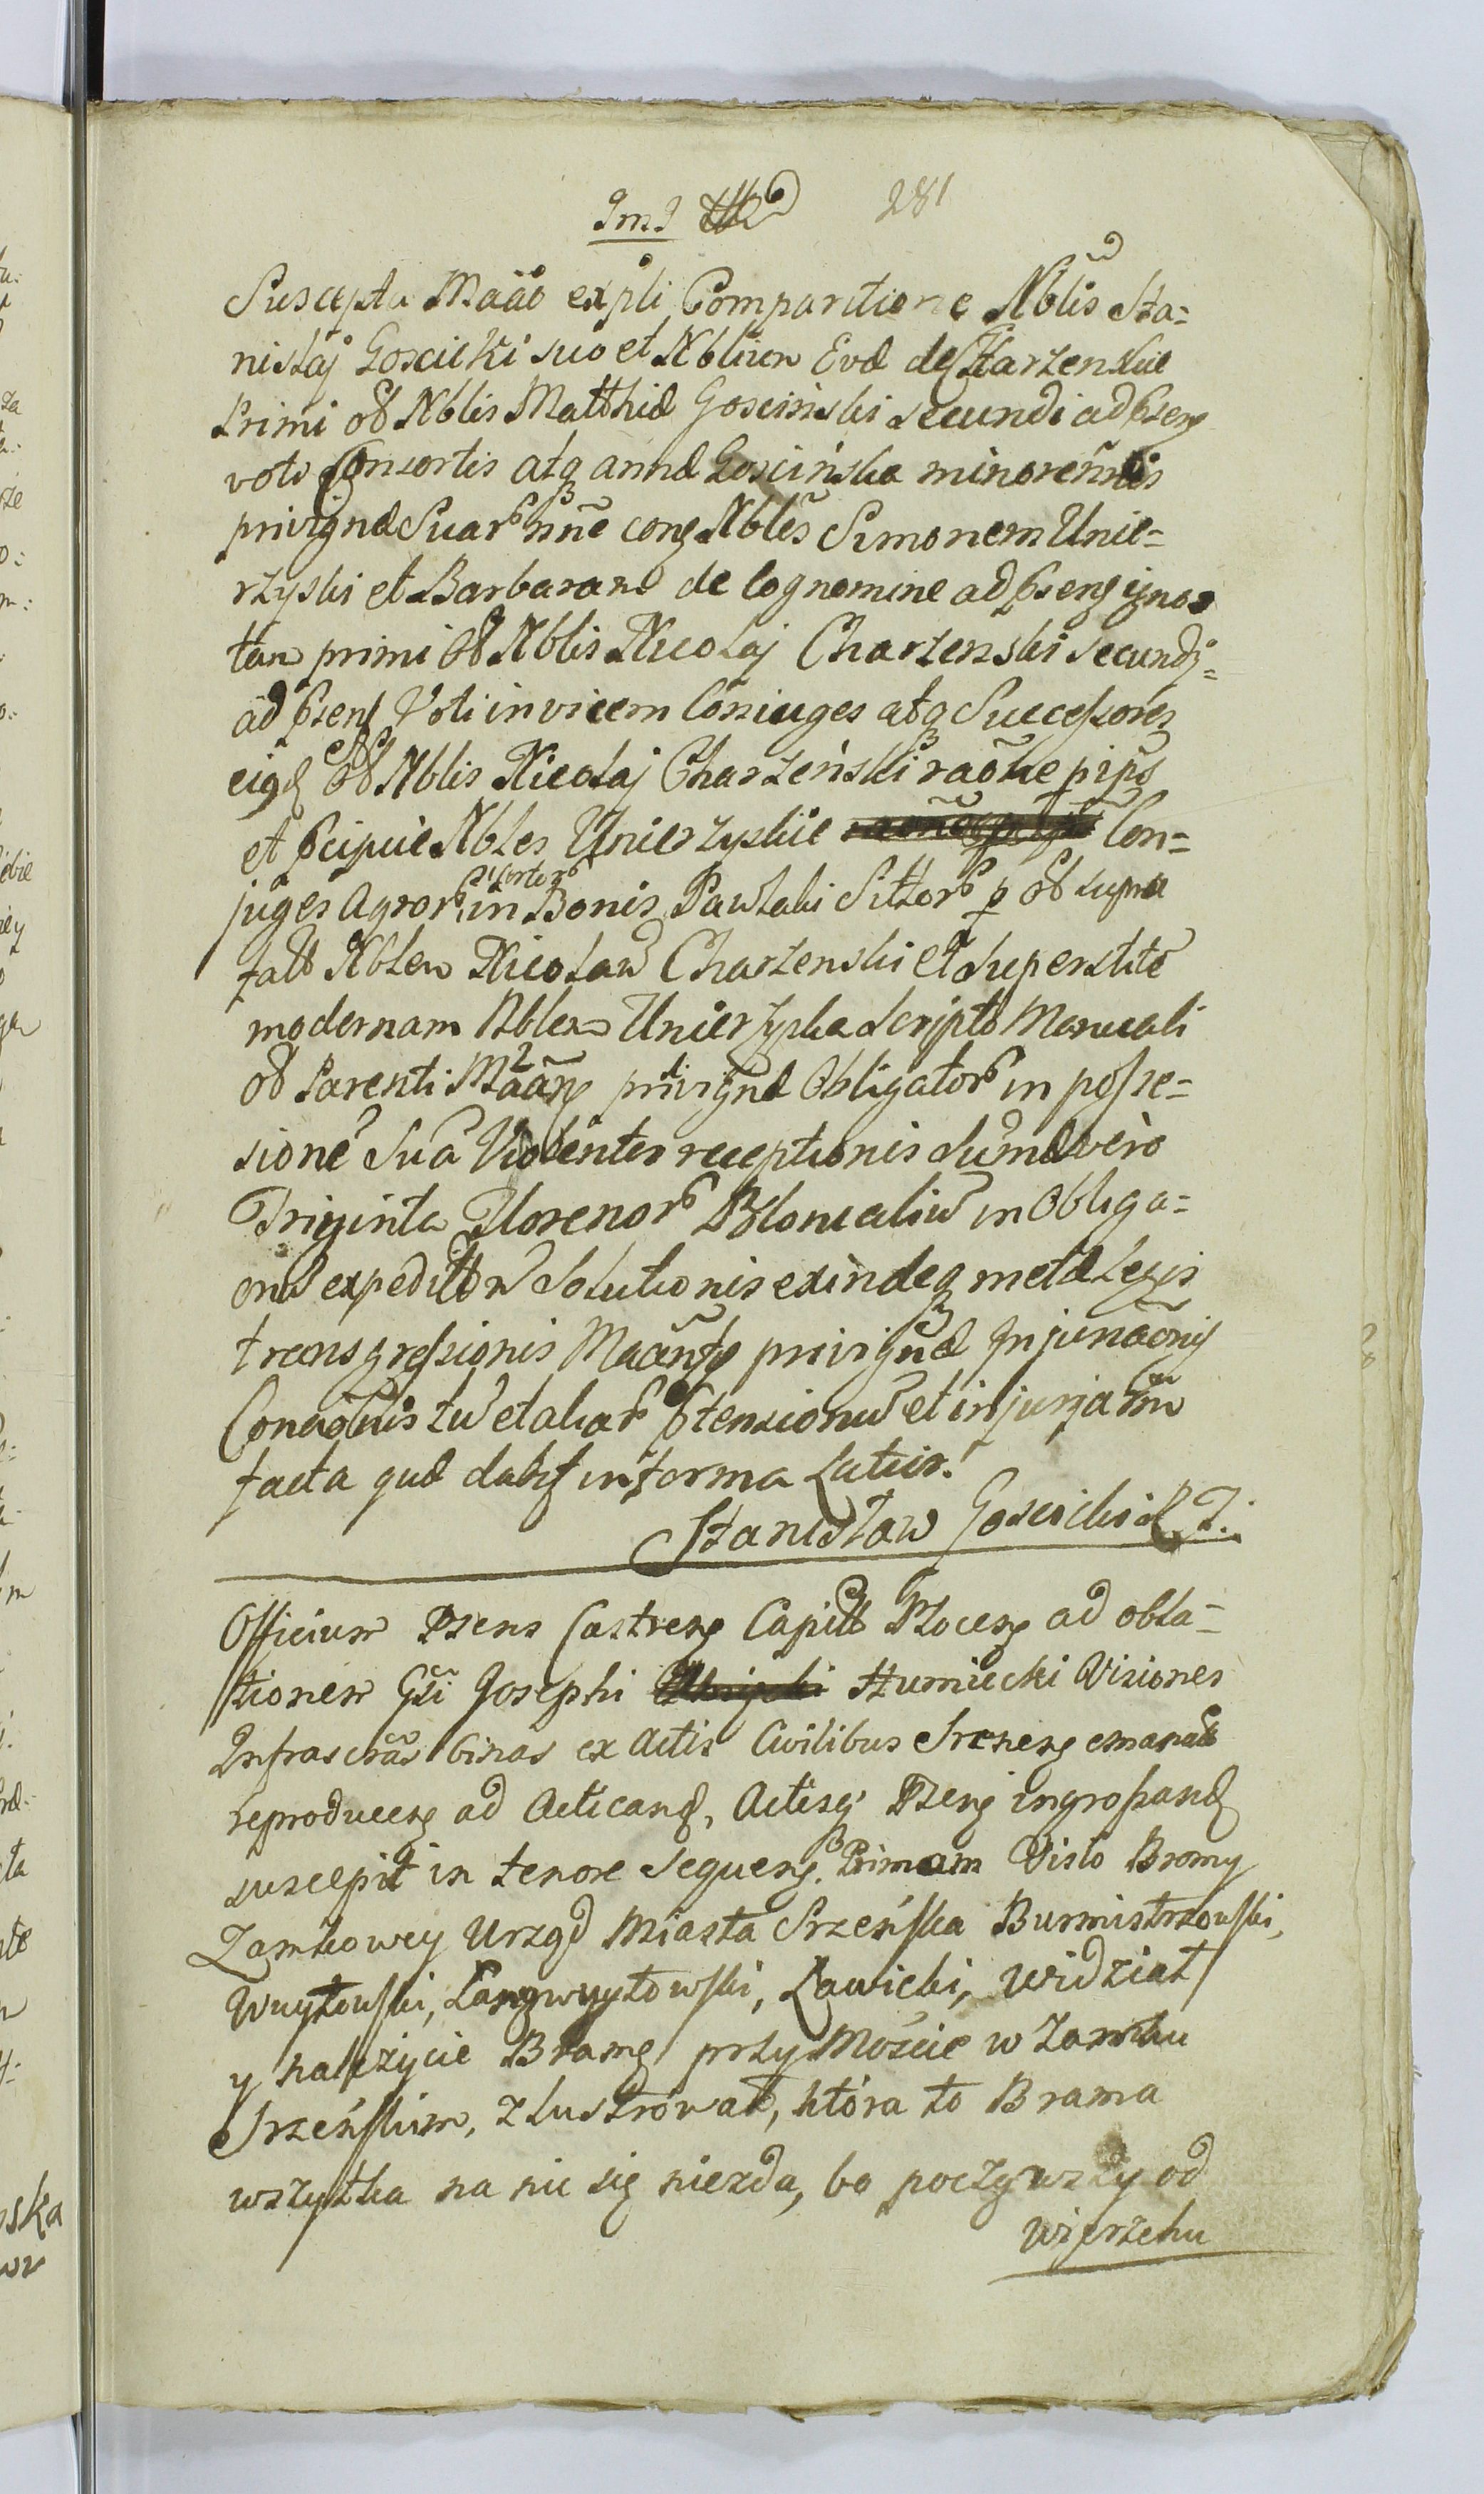 281
Suscepta Maão expli Comparitione Nblis Sta-
nislaj Goscicki suo et Nblium Evæ de Charzenskie
Primi olim Nblis Matthiæ Goscinski secundi ad pseng
voto Consortis atq annæ Goscińska minorennis
privignæ Suar nñe cong Nbles Simonem Unie-
rzyski et Barbaram de Cognomine ad pseng igno-
tam primi olim Nblis Nicolaj Charzenski secundi
ad pseng Voti invicem Coniuges atq Successores
eigd olim Nblis Nicolaj Charzeński raõne prpo
et pcipue Nbles Unierzyskie Con-
juges Agror in Bonis Pawlaki Sittor p olim supra
fatt Nblem Nicolaum Charzenski et Superstite
modernam Nblem Unierzyska Scripto Manuali
olim Parenti Maang privignæ Obligator in posse-
sione Sua Violenter receptionis Summæ vero
Triginta Florenor Polonicaliu in Obliga-
one expedittar Solutionis exindeq metæ Legis
transgressionis Maantg privignæ Injunaonis
Conaonis tu et aliar ptensionu et injuriatm
facta quæ dabit in forma Latius.
Stanisław Goscicki
Officium Psens Castreng Capitt Płoceng ad obla-
tionem Gsi Josephi Humiecki Visiones
Infrascrãs binas ex Actis Civilibus Sreneng emanatt
reproduceng ad Acticand, Actisq Pseng ingrossand
suscepit in tenore Sequeng. Primam Visio Bromy
Zamkowey Urząd Miasta Srzeńska Burmistrzowski,
Wuytowski, Langwuytowski, Ławicki, widziat
y należycie Bramę przy Moście w Zamku
Srzeńskim, zlustrował, która to Brama
wszytka na nic się niezda, bo począwszy od
wierzchu